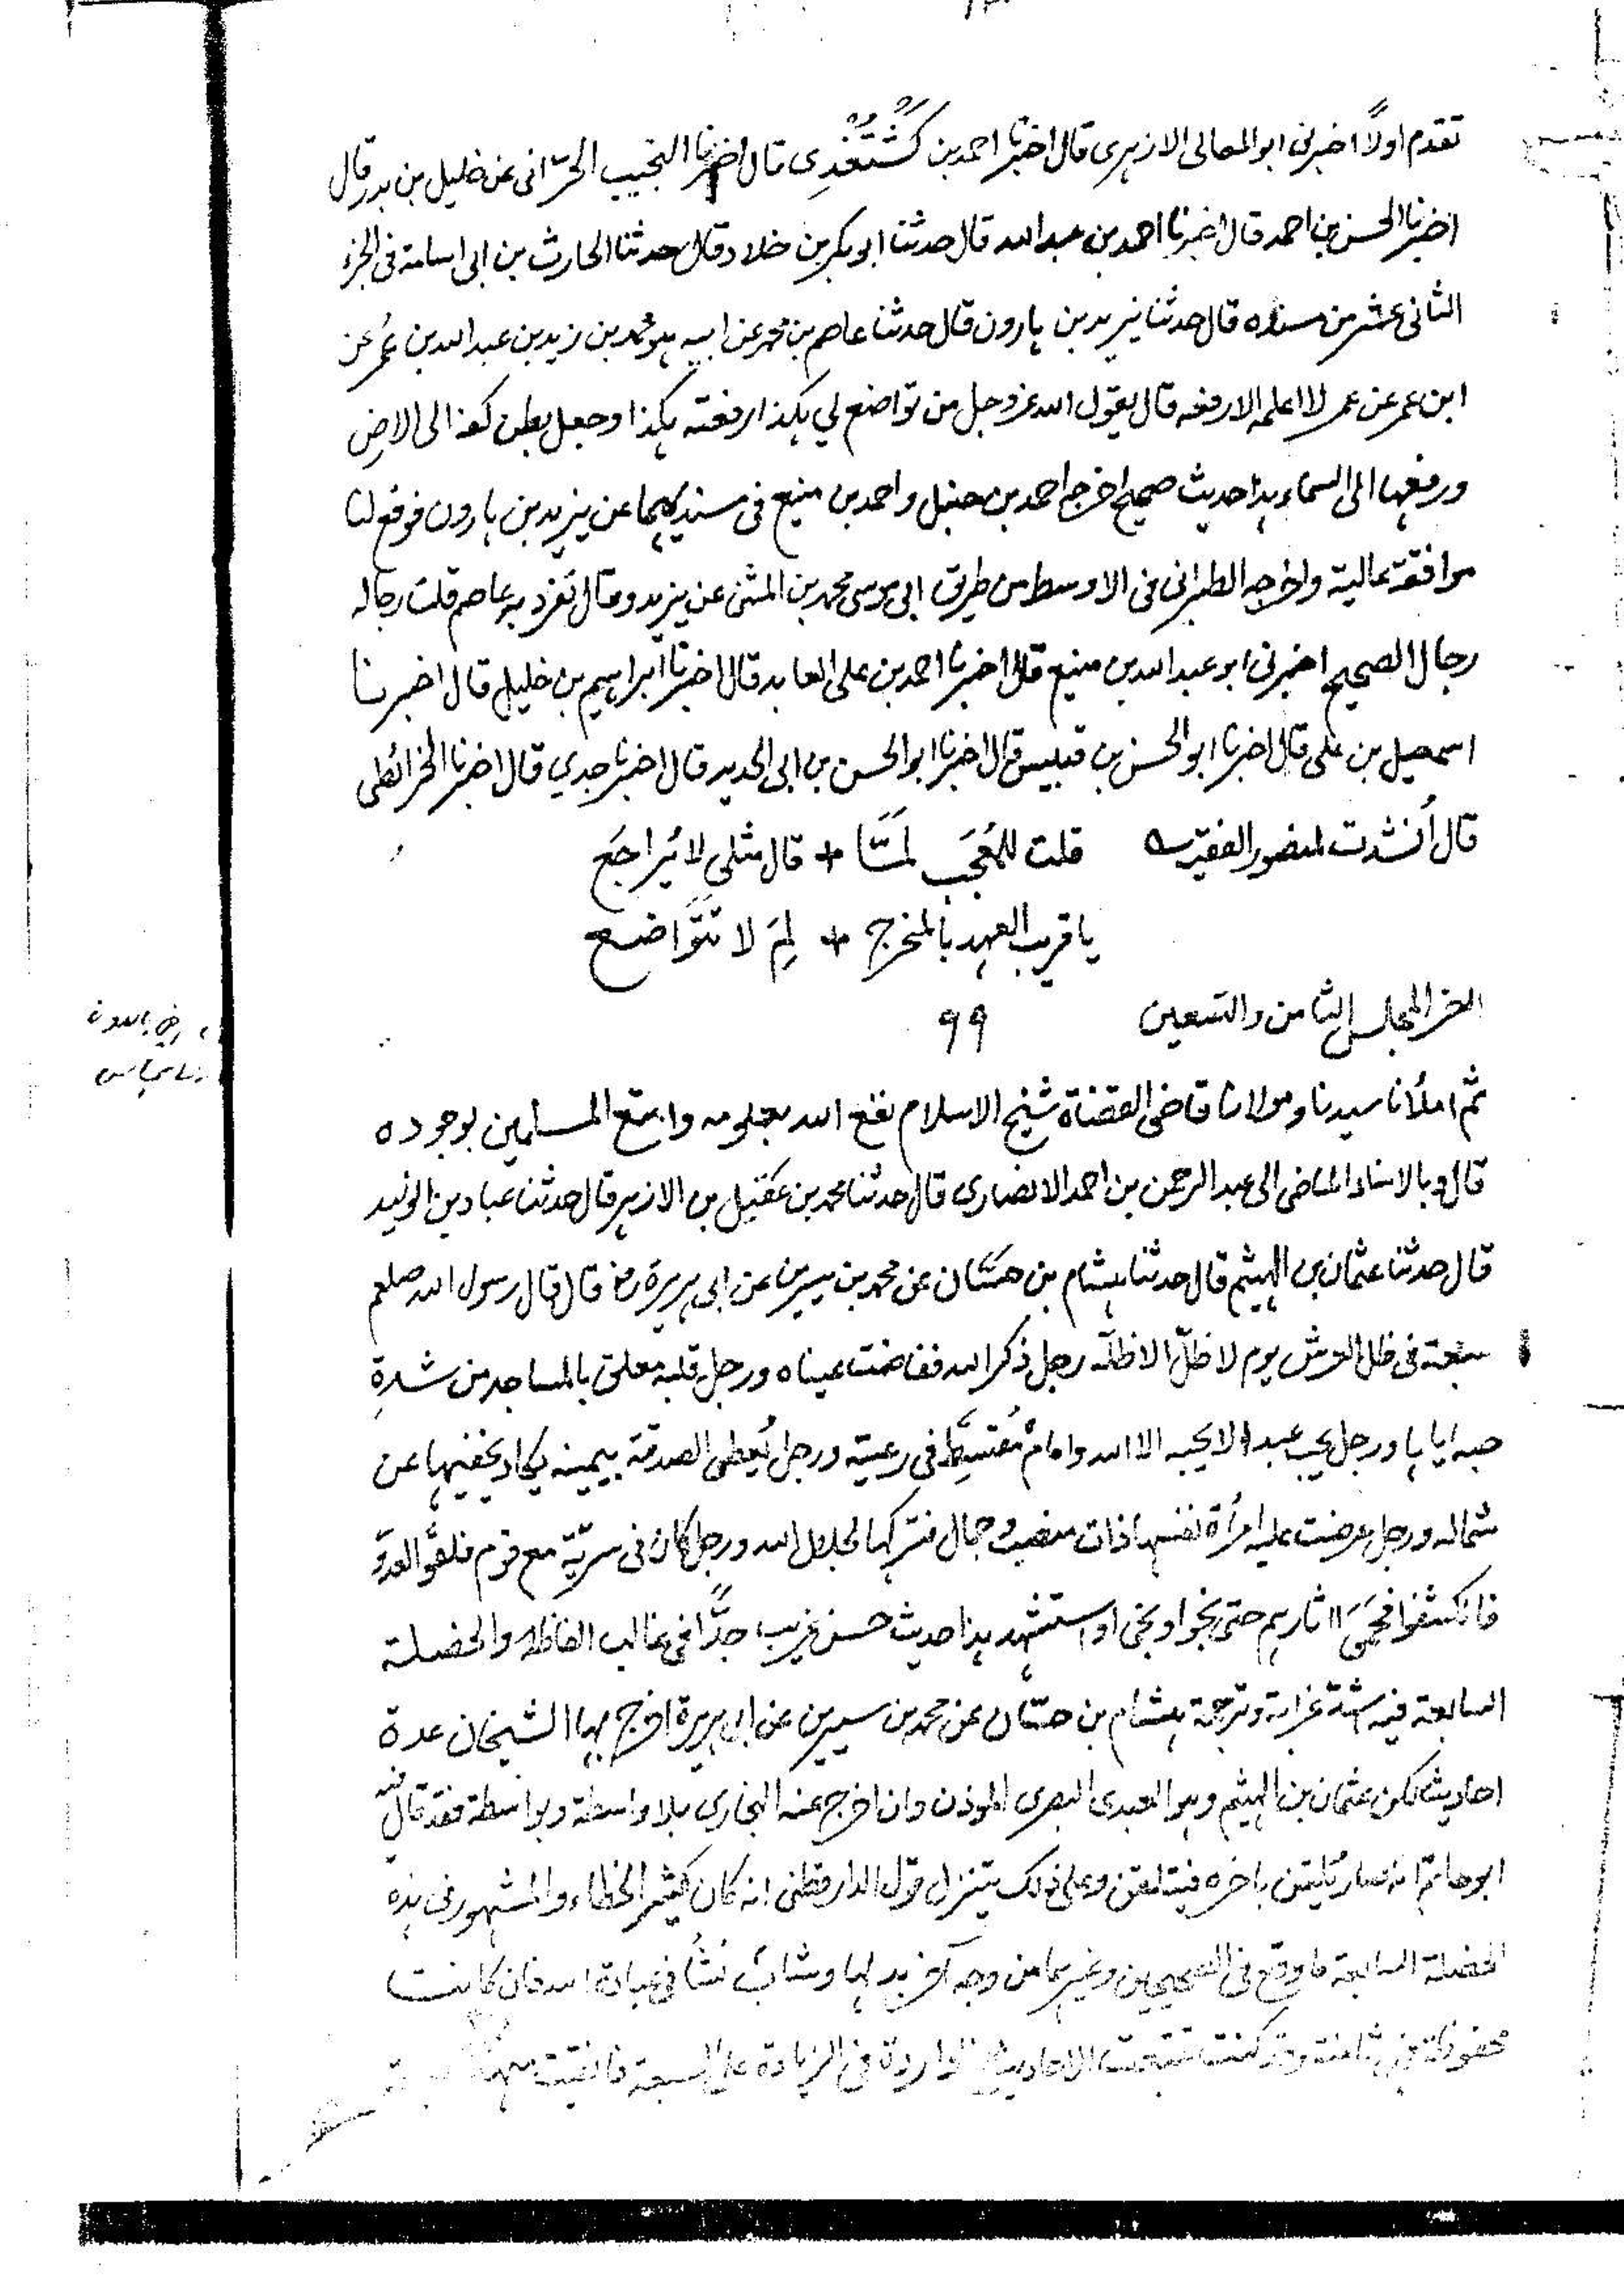 تقدم اولاً اخبرني ابو المعالى الازهرى قال اخبرنا احمد بن كُشْتُغْدِى قال اخبرنا النجيب الحرّانى عن خليل بن بدر قال
اخبرنا الحسن بن احمد قال اخبرنا احمد بن عبد الله قال حدثنا ابو بكر بن خلاد قال حدثنا الحارث بن ابى اسامة فى الجزء
الثانى عشر من مسنده قال حدثنا يزيد بن هارون قال حدثنا عاصم بن محمد عن ابيه هو محمد بن زيد بن عبد الله بن عُمر عن
ابن عمر عن عمر لا اعلمه الا رفعه قال يقول الله عز وجل من تواضع لي هكذا رفعته هكذا وجعل بطن كفه الى الارض
ورفعها الى السماء هذا حديث صحيح اخرجه احمد بن حنبل واحمد بن منيع فى مسنديهما عن يزيد بن هارون فوقع لنا
موافقة عالية واخرجه الطبرانى فى الاوسط من طريق ابى موسى محمد بن المثنى عن يزيد وقال تفرد به عاصم قلت رجاله
رجال الصحيح اخبرنى ابو عبد الله بن منيع قال اخبرنا احمد بن على العابد قال اخبرنا ابراهيم بن خليل قال اخبرنا
اسمعيل بن على قال اخبرنا ابو الحسن بن قبيس قال اخبرنا ابو الحسن بن ابى الحديد قال اخبرنا جدي قال اخبرنا الخرائطى
قال اُنشدت لمنصور الفقيه قلت للمُعجَب لمّا + قال مثلى لا يُراجَع
يا قريب العهد بالمخرج + لِمَ لا تتَواضع
اخر المجلس الثامن والتسعين ٩٩
ثم املأنا سيدنا ومولانا قاضى القضاة شيخ الاسلام نفع الله بعلومه وامتع المسلمين بوجوده
قال وبالاسناد الماضى الى عبد الرحمن بن احمد الانصارى قال حدثنا محمد بن عقيل بن الازهر قال حدثنا عباد بن الوليد
قال حدثنا عثمان بن الهيثم قال حدثنا هشام بن حسّان عن محمد بن سيرين عن ابى هريرة رض قال قال رسول الله صلعم
سبعة فى ظل العرش يوم لا ظلّ الا ظله رجل ذكر الله ففاضت عيناه ورجل قلبه معلق بالمساجد من شدةِ
حبه اياها ورجل يحب عبدا لا يحبه الا الله وامام مُقسِط فى رعيته ورجل يُعطى الصدقة بيمينه يكاد يخفيها عن
شماله ورجل عرضت عليه امرأة نفسها ذات منصب وجمال فتركها لجلال الله ورجل كان فى سريّة مع قوم فلقوا العدوّ
فانكشفوا فحمَى اثارهم حتى نجوا ونجى او استشهد هذا حديث حسن غريب جدًّا فى غالب الفاظه والخصلة
السابعة فيه اشدّ غرابة وترجمة هشام بن حسّان عن محمد بن سيرين عن ابى هريرة اخرج بها الشيخان عدة
احاديث لكن عثمان بن الهيثم وهو العبدى البصرى المؤذن وان اخرج عنه البخارى بلا واسطة وبواسطة فقد قال فيه
ابو حاتم انه صار يُلقّن باخره فيتلقن وعلى ذلك يتنزل قول الدارقطنى انه كان كثير الخطاء والمشهور فى هذه
الخصلة السابعة ما وقع فى الصحيحين وغيرهما من وجه اخر بدلها وشاب نشأ فى عبادة الله فان كانت
محفوظة فهى ثامنة وقد كنت تتبعت الاحاديث الواردة فى الزيادة على السبعة فانتقيت منها